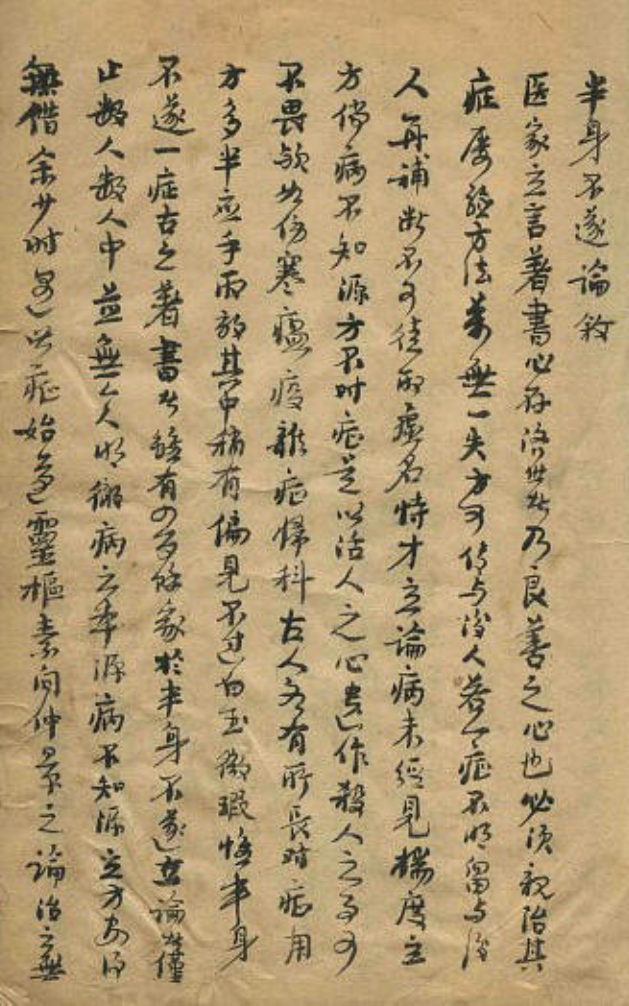 半身不遂論敘
医家立言著書心存済世者乃良善之心也必須親治其
症屡騐方法萬無一失方可傳与後人若一症不明留与後
人再補断不可徒取虚名恃才立論病未經見揣度立
方倘病不知源方不对症是以活人之心遺作殺人之事可
不畏欤如伤寒瘟疫雜症婦科古人各有所長对症用
方多半應手取効其中稍有偏見不过白玉微瑕惟半身
不遂一症古之著書者雖有四百餘家於半身不遂立論者僅
止数人数人中並無一人明徹病之本源病不知源立方安得
無借余少时遇此症始遵靈樞素问仲景之論治之無